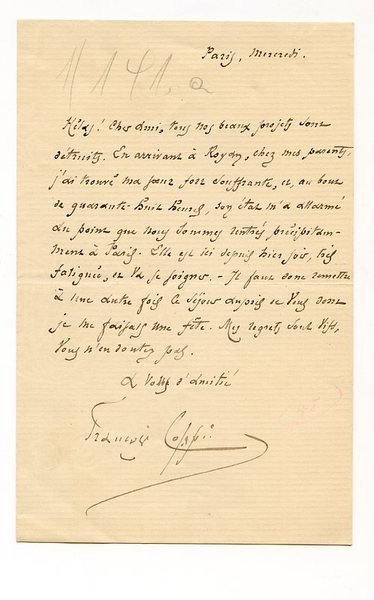 Paris, Mercredi.
141. a
Hélas! Cher Ami, tous nos beaux projets sont
détruits. En arrivant à Royan, chez mes parents,
j'ai trouvé ma sœur fort souffrante, et, au bout
de quarante-huit heures, son état m'a allarmé
au point que nous sommes rentrés précipitam-
ment à Paris. Elle est ici depuis hier soir, très
fatiguée, et va se soigner. - Il faut donc remettre
à une autre fois ce séjour auprès de vous dont
je me faisais une fête. Mes regrets sont vifs,
vous n'en doutez pas.
A vous d'amitié
François Coppée